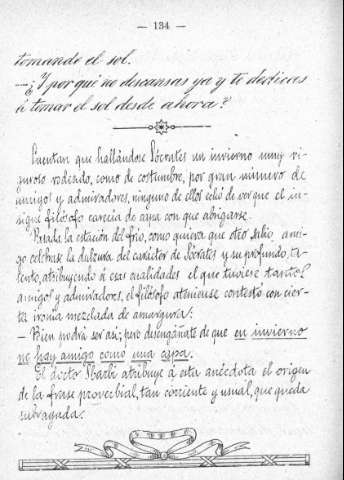 — 134 —
tomando el sol.
—¿Y por qué no descansas ya y te dedicas
á tomar el sol desde ahora?
Cuentan que hallándose Sócrates un invierno muy ri-
guroso rodeado, como de costumbre, por gran número de
amigos y admiradores, ninguno de ellos echó de ver que el in-
signe filósofo carecía de capa con que abrigarse.
Pasada la estación del frío, como quiera que otro solio ami-
go celebrase la dulzura del carácter de Sócrates y su profundo ta-
lento, atribuyendo á esas cualidades el que tuviese tantos
amigos y admiradores, el filósofo ateniense contestó con cier-
ta ironía mezclada de amargura:
— Bien podrá ser así; pero desengáñate de que en invierno
no hay amigo como una capa.
El doctor Sbarbi atribuye á esta anécdota el origen
de la frase proverbial, tan corriente y usual, que queda
subrayada.